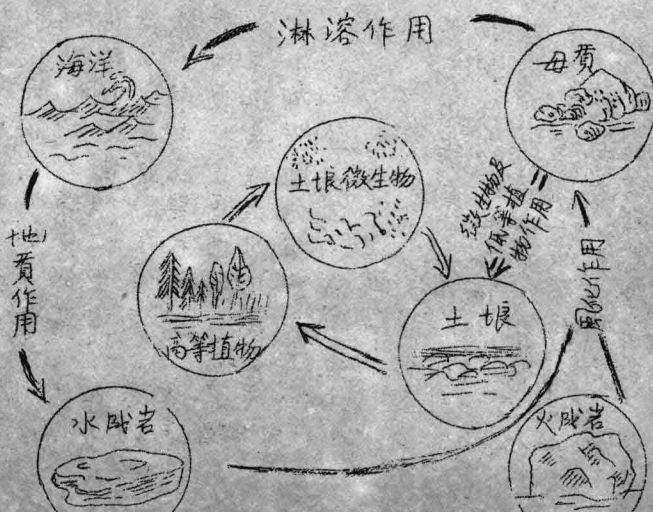 淋溶作用
海洋
母質
土壤微生物
微生物及
低等植
物作用
地質作用
風化作用
高等植物
土壤
水成岩
火成岩